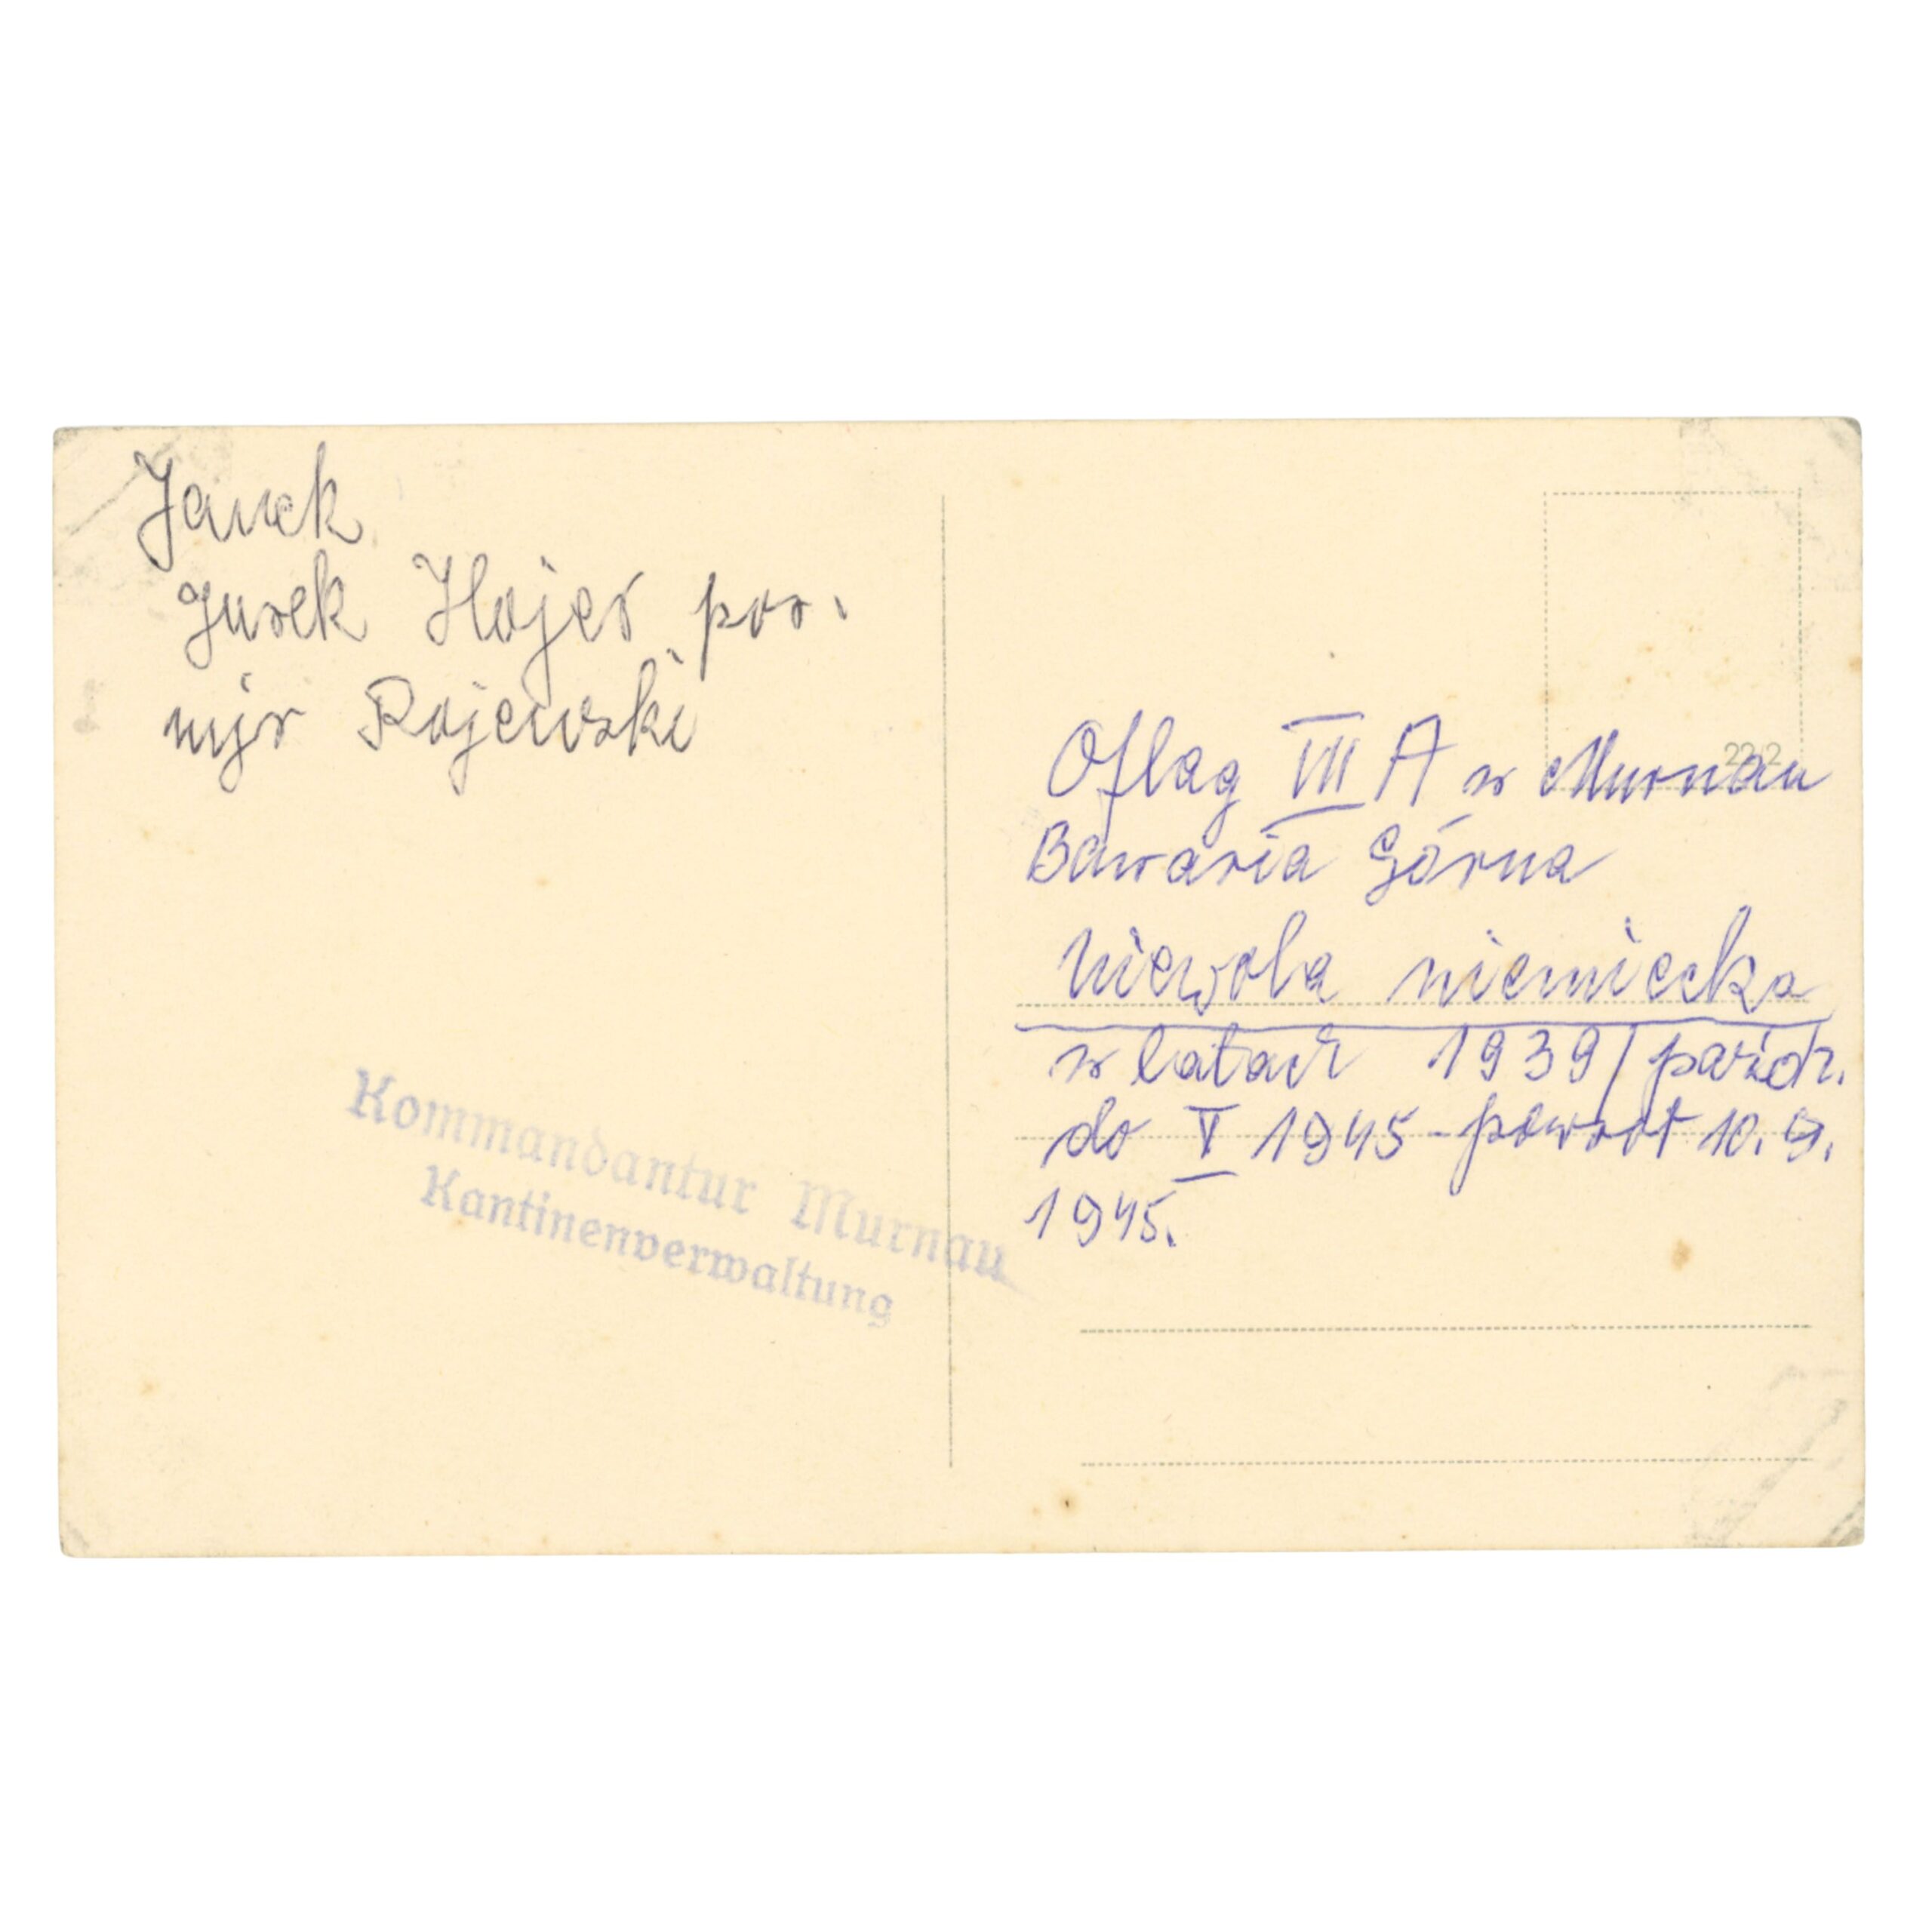 Janek
Jurek Hojer por.
mjr Rojewski
Kommandantur Murnau
Kantinenverwaltung
22/2
Oflag VII A w Murnau
Bawaria Górna
Niewola niemiecka
w latach 1939/paźdz.
do V 1945 - powrót 10.9.
1945.